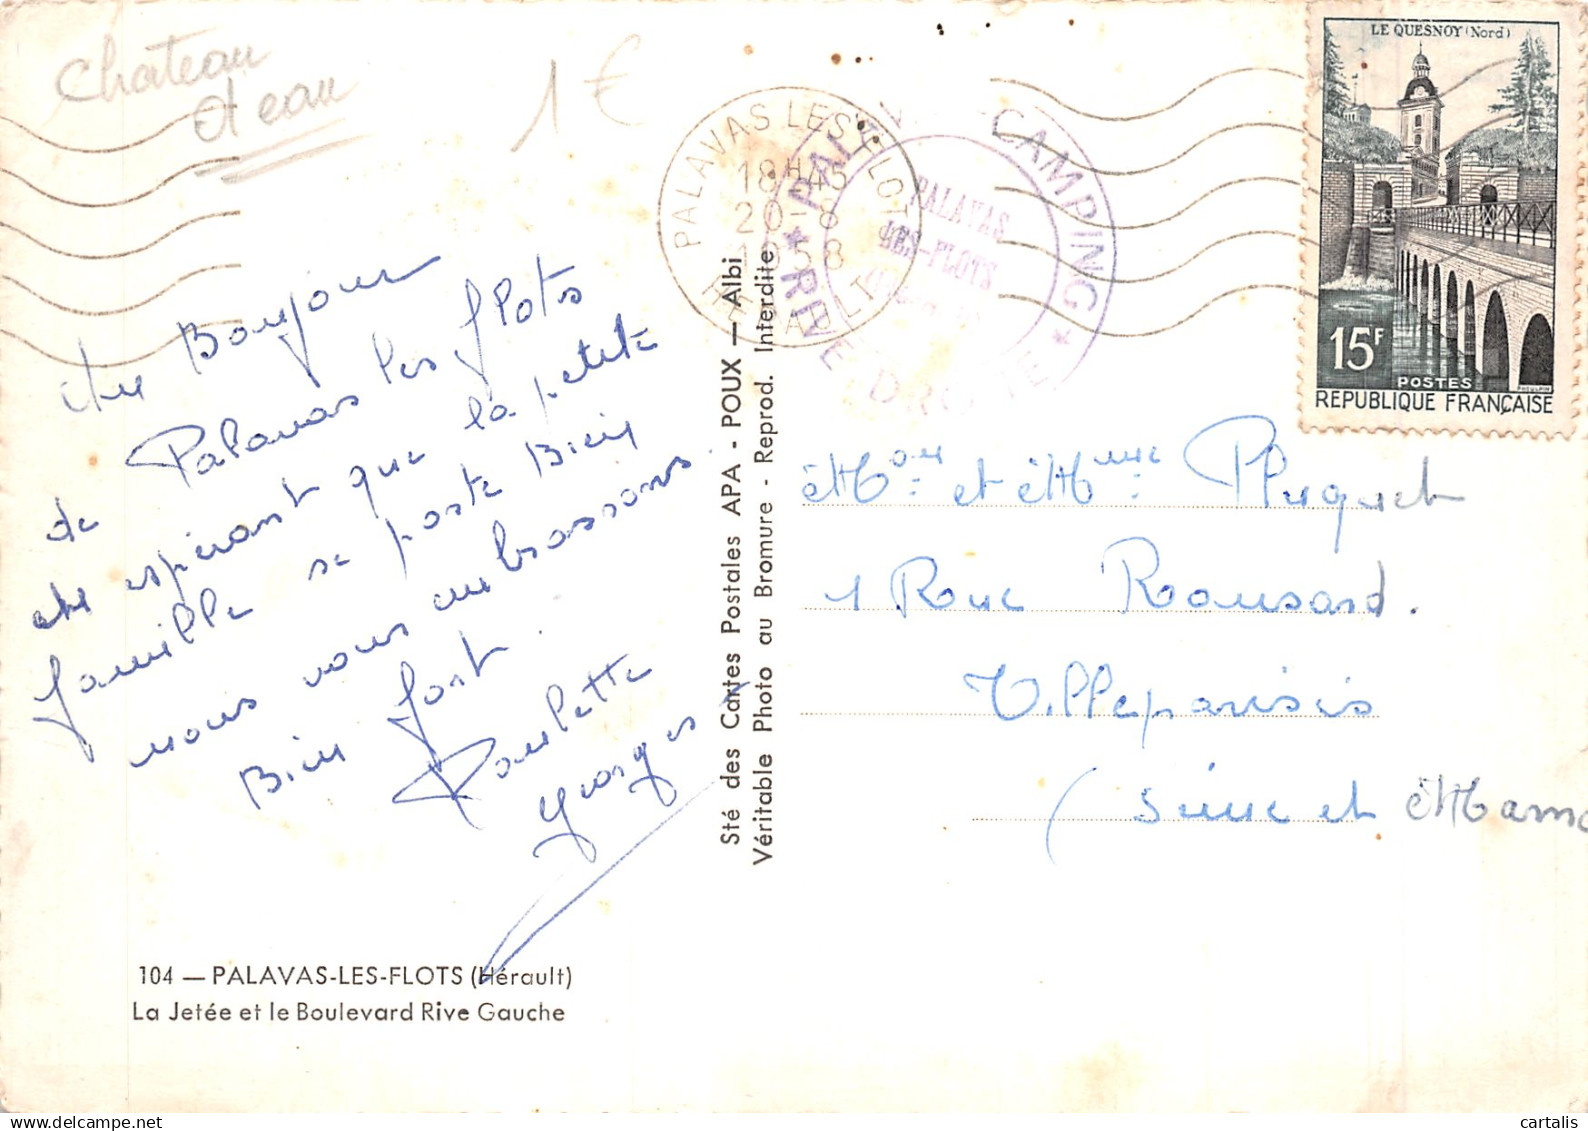 Chateau
d'eau
1 €
PALAVAS LES FLOTS
18H45
20-8
1958
HERAULT
CAMPING
* RIVE DROITE *
PALAVAS
LES-FLOTS
LE QUESNOY (Nord)
15F
POSTES
REPUBLIQUE FRANÇAISE
Un Bonjour
de Palavas les flots
en espérant que la petite
famille se porte Bien
nous vous embrassons
Bien fort.
Paulette
Georges
Sté des Cartes Postales APA - POUX — Albi
Véritable Photo au Bromure - Reprod. Interdite
Mr et Mme Pluquet
1 Rue Ronsard.
Villeparisis
(Seine et Marne
104 — PALAVAS-LES-FLOTS (Hérault)
La Jetée et le Boulevard Rive Gauche
cartalis